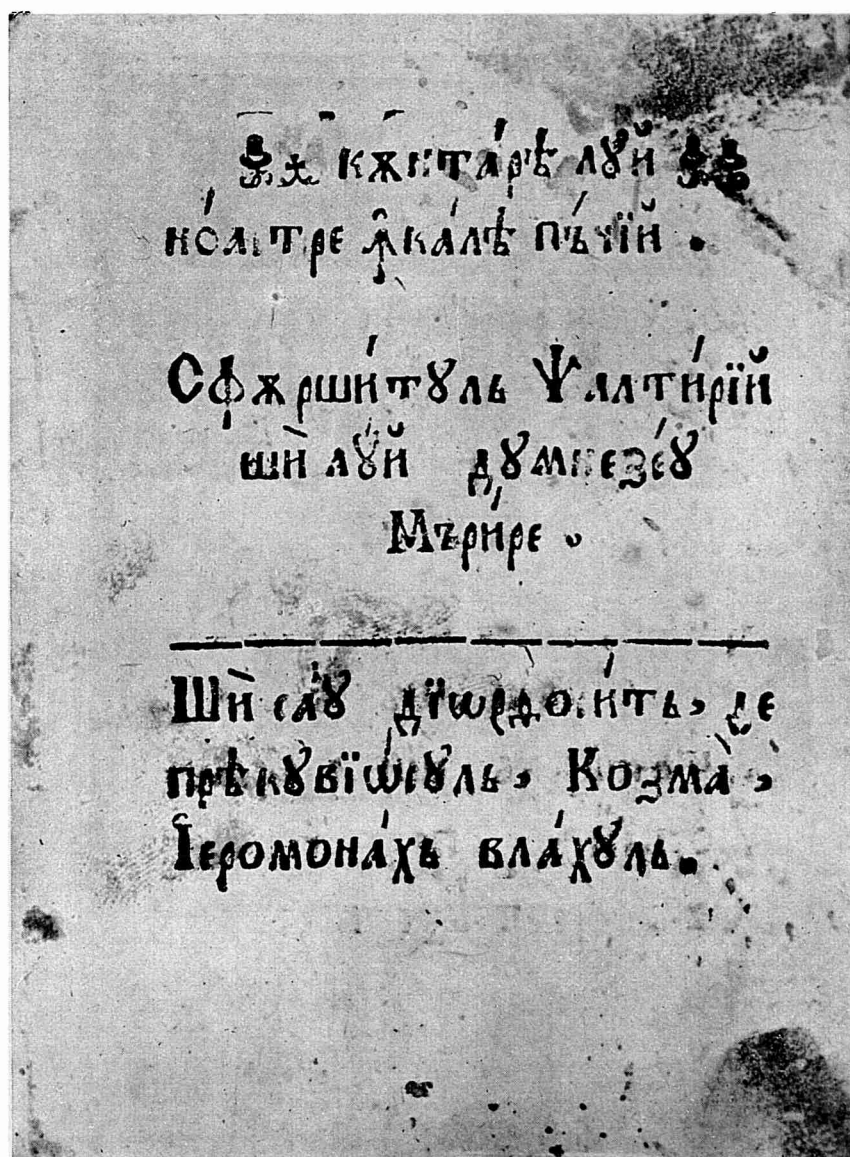 кѫнтáрѣ лꙋ́й
нóастре ꙟ҆кáлѣ пъ́чїй .
Сфѫрши́тꙋль Ѱалти́рїй
шѝ лꙋ́й дꙋмнезéꙋ
Мъри́ре .
Шѝ сáꙋ дїѡрѳоси́ть, де
прѣкꙋвїѡ́сꙋль, Козмà,
І҆еромонáхь влáхꙋль.